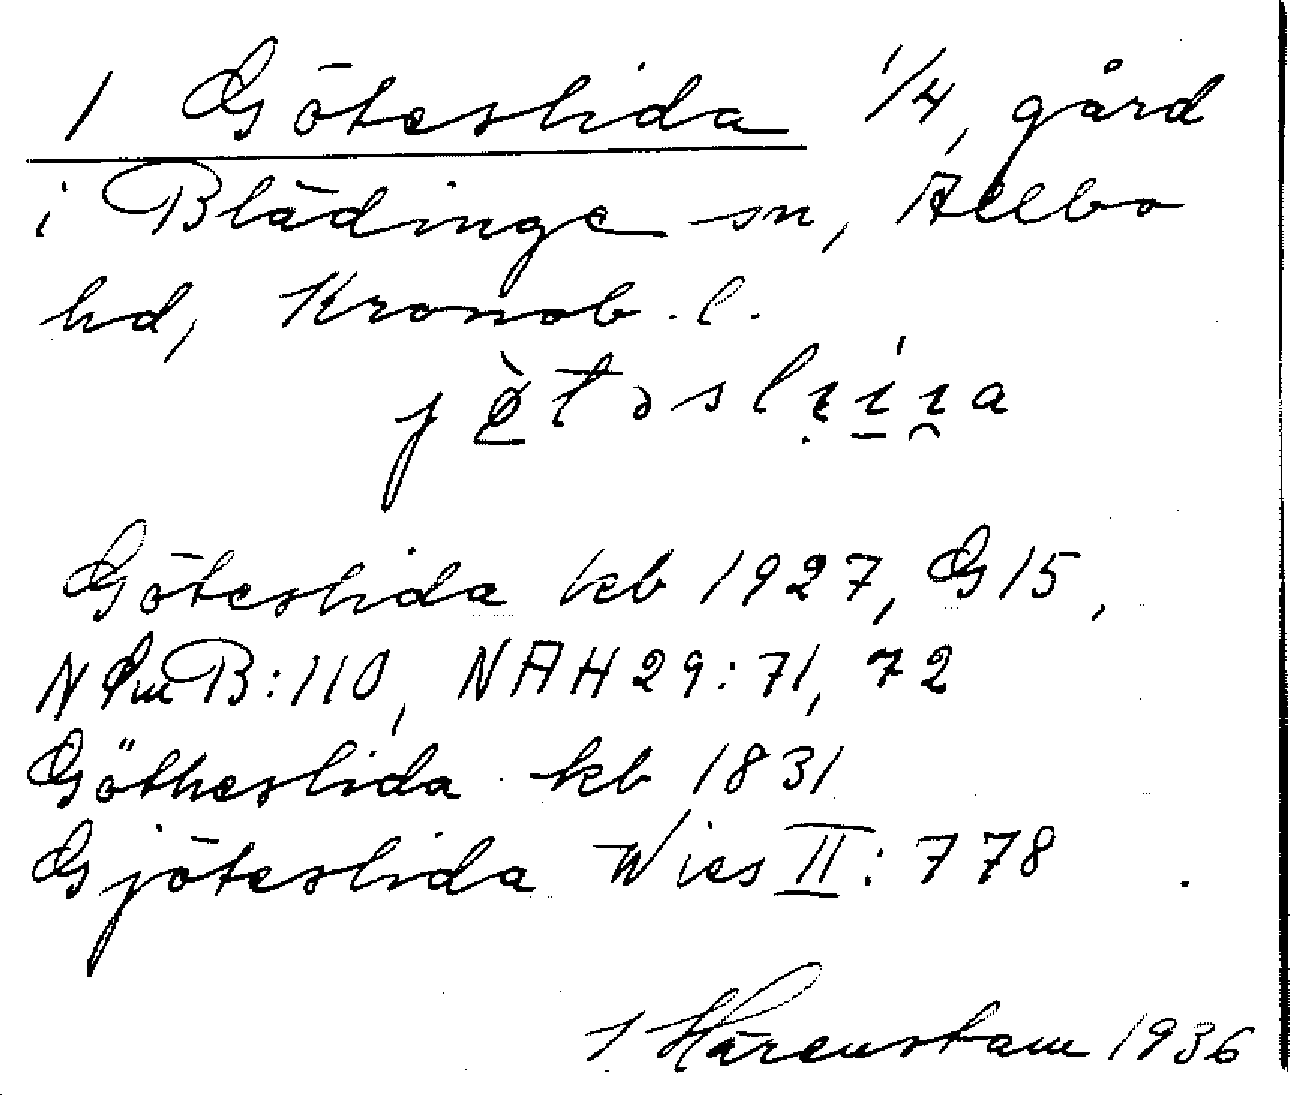 1 Göteslida 1/4, gård
i Blädinge sn, Allbo
hd, Kronob. l.
Göteslida kb 1927, G15,
NSmB:110, NAH29:71, 72
Götheslida kb 1831
Gjöteslida Wies II: 778
J Härenstam 1936